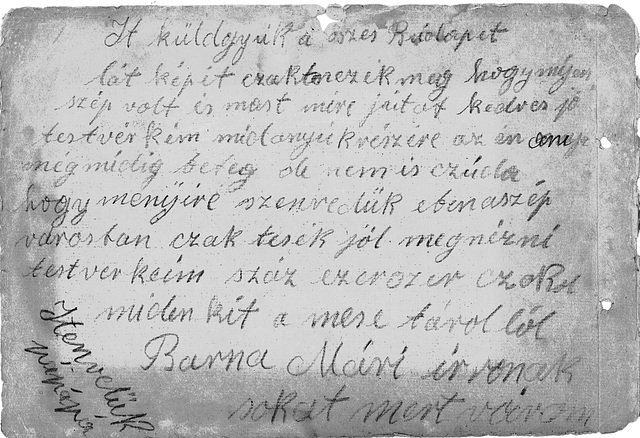 It küldgyük a öszes Budapet
lát képét czak nezék meg hogy mijen
szép volt és most mire jutot kedves jó
testvér kéim midanyuk részére az én anyu
meg midig beteg de nem is czúda
hogy menyire szenvedük ebenaszép
városban czak tesék jól megnézni
testverkeim száz ezerszer czokol
midenkit a mese távol ból
Barna Mári irvonak
sokat mert várom